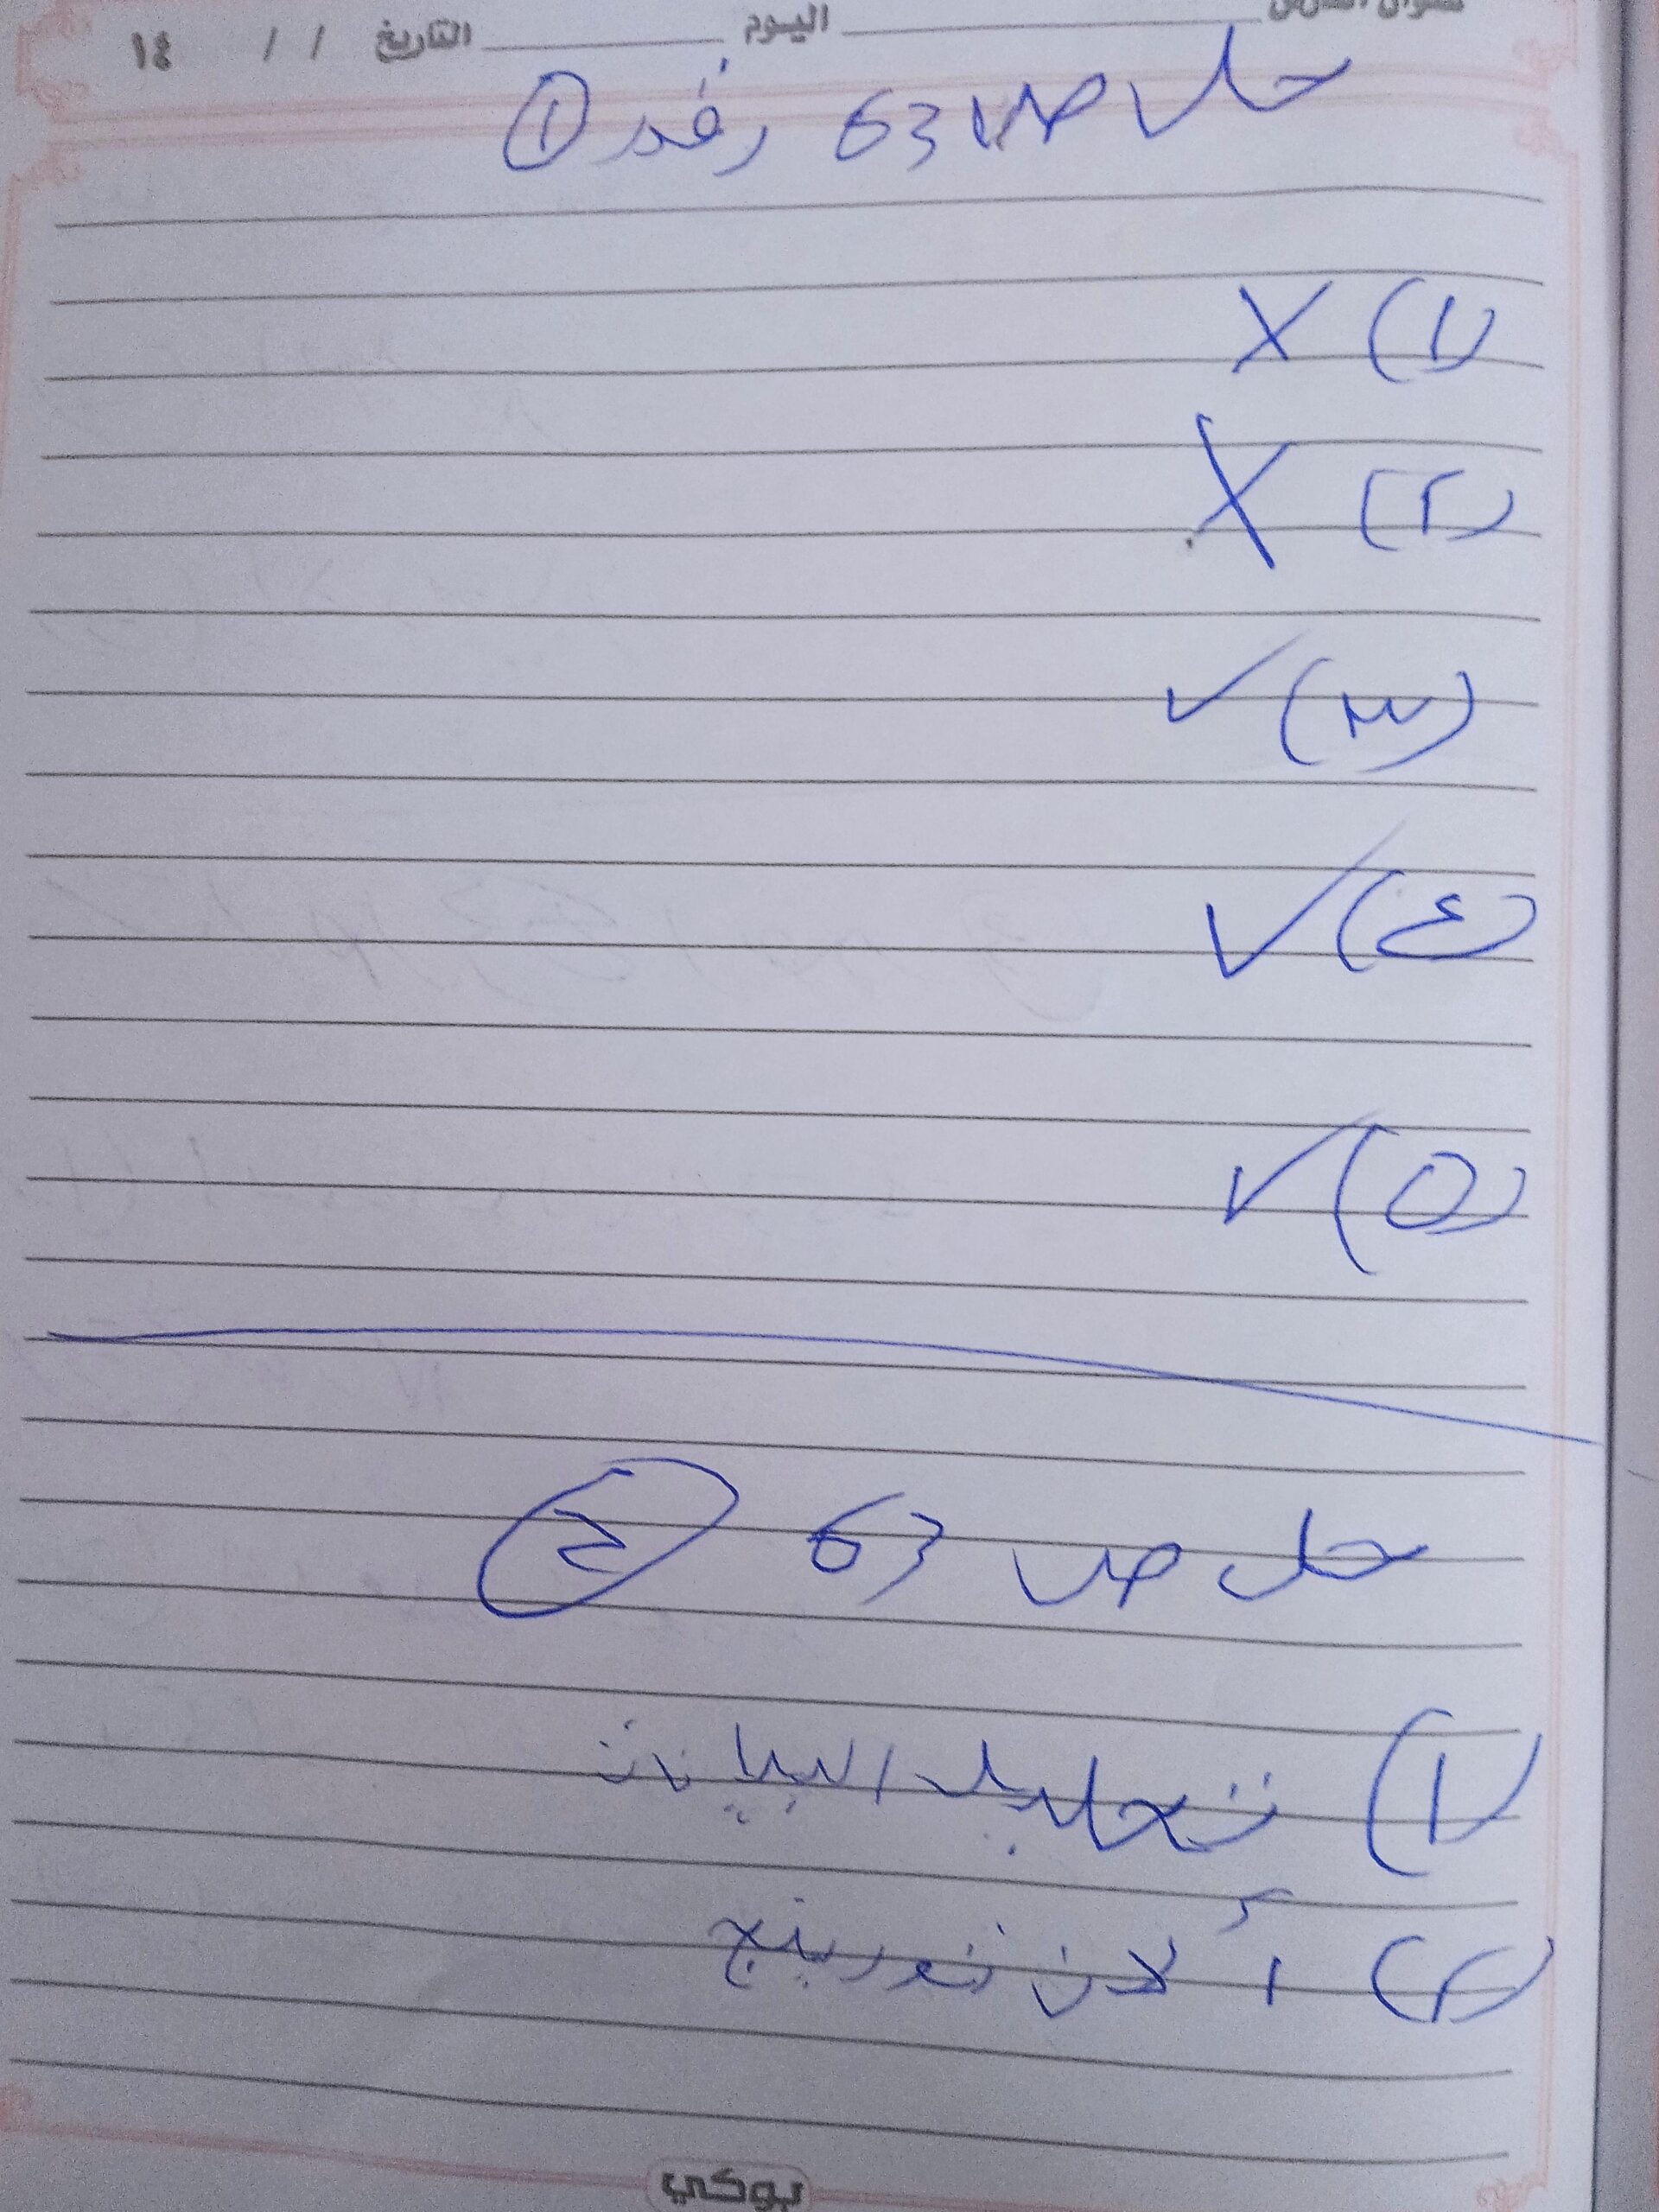 عنوان الدرس اليوم التاريخ / / ١٤
حل ص 63 رقم ①
(١) X
(٢) X
(٣) ✓
(٤) ✓
(٥) ✓
حل ص 63 ②
(١) تحليل البيانات
(٢) ألان تورينج
بوكي